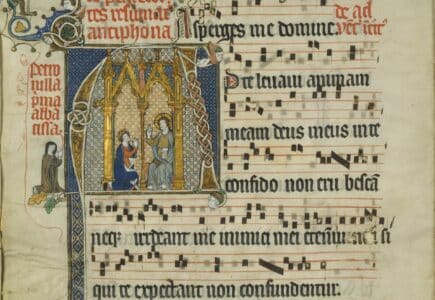 antiphona Asperges me domine. de ad
petro
nilla
pma
abba
tissa.
AD te leuaui animam
meam deus meus in te
confido non erubescā
neq; irrideant me inimici mei etenim
qui te expectant non confundentur.